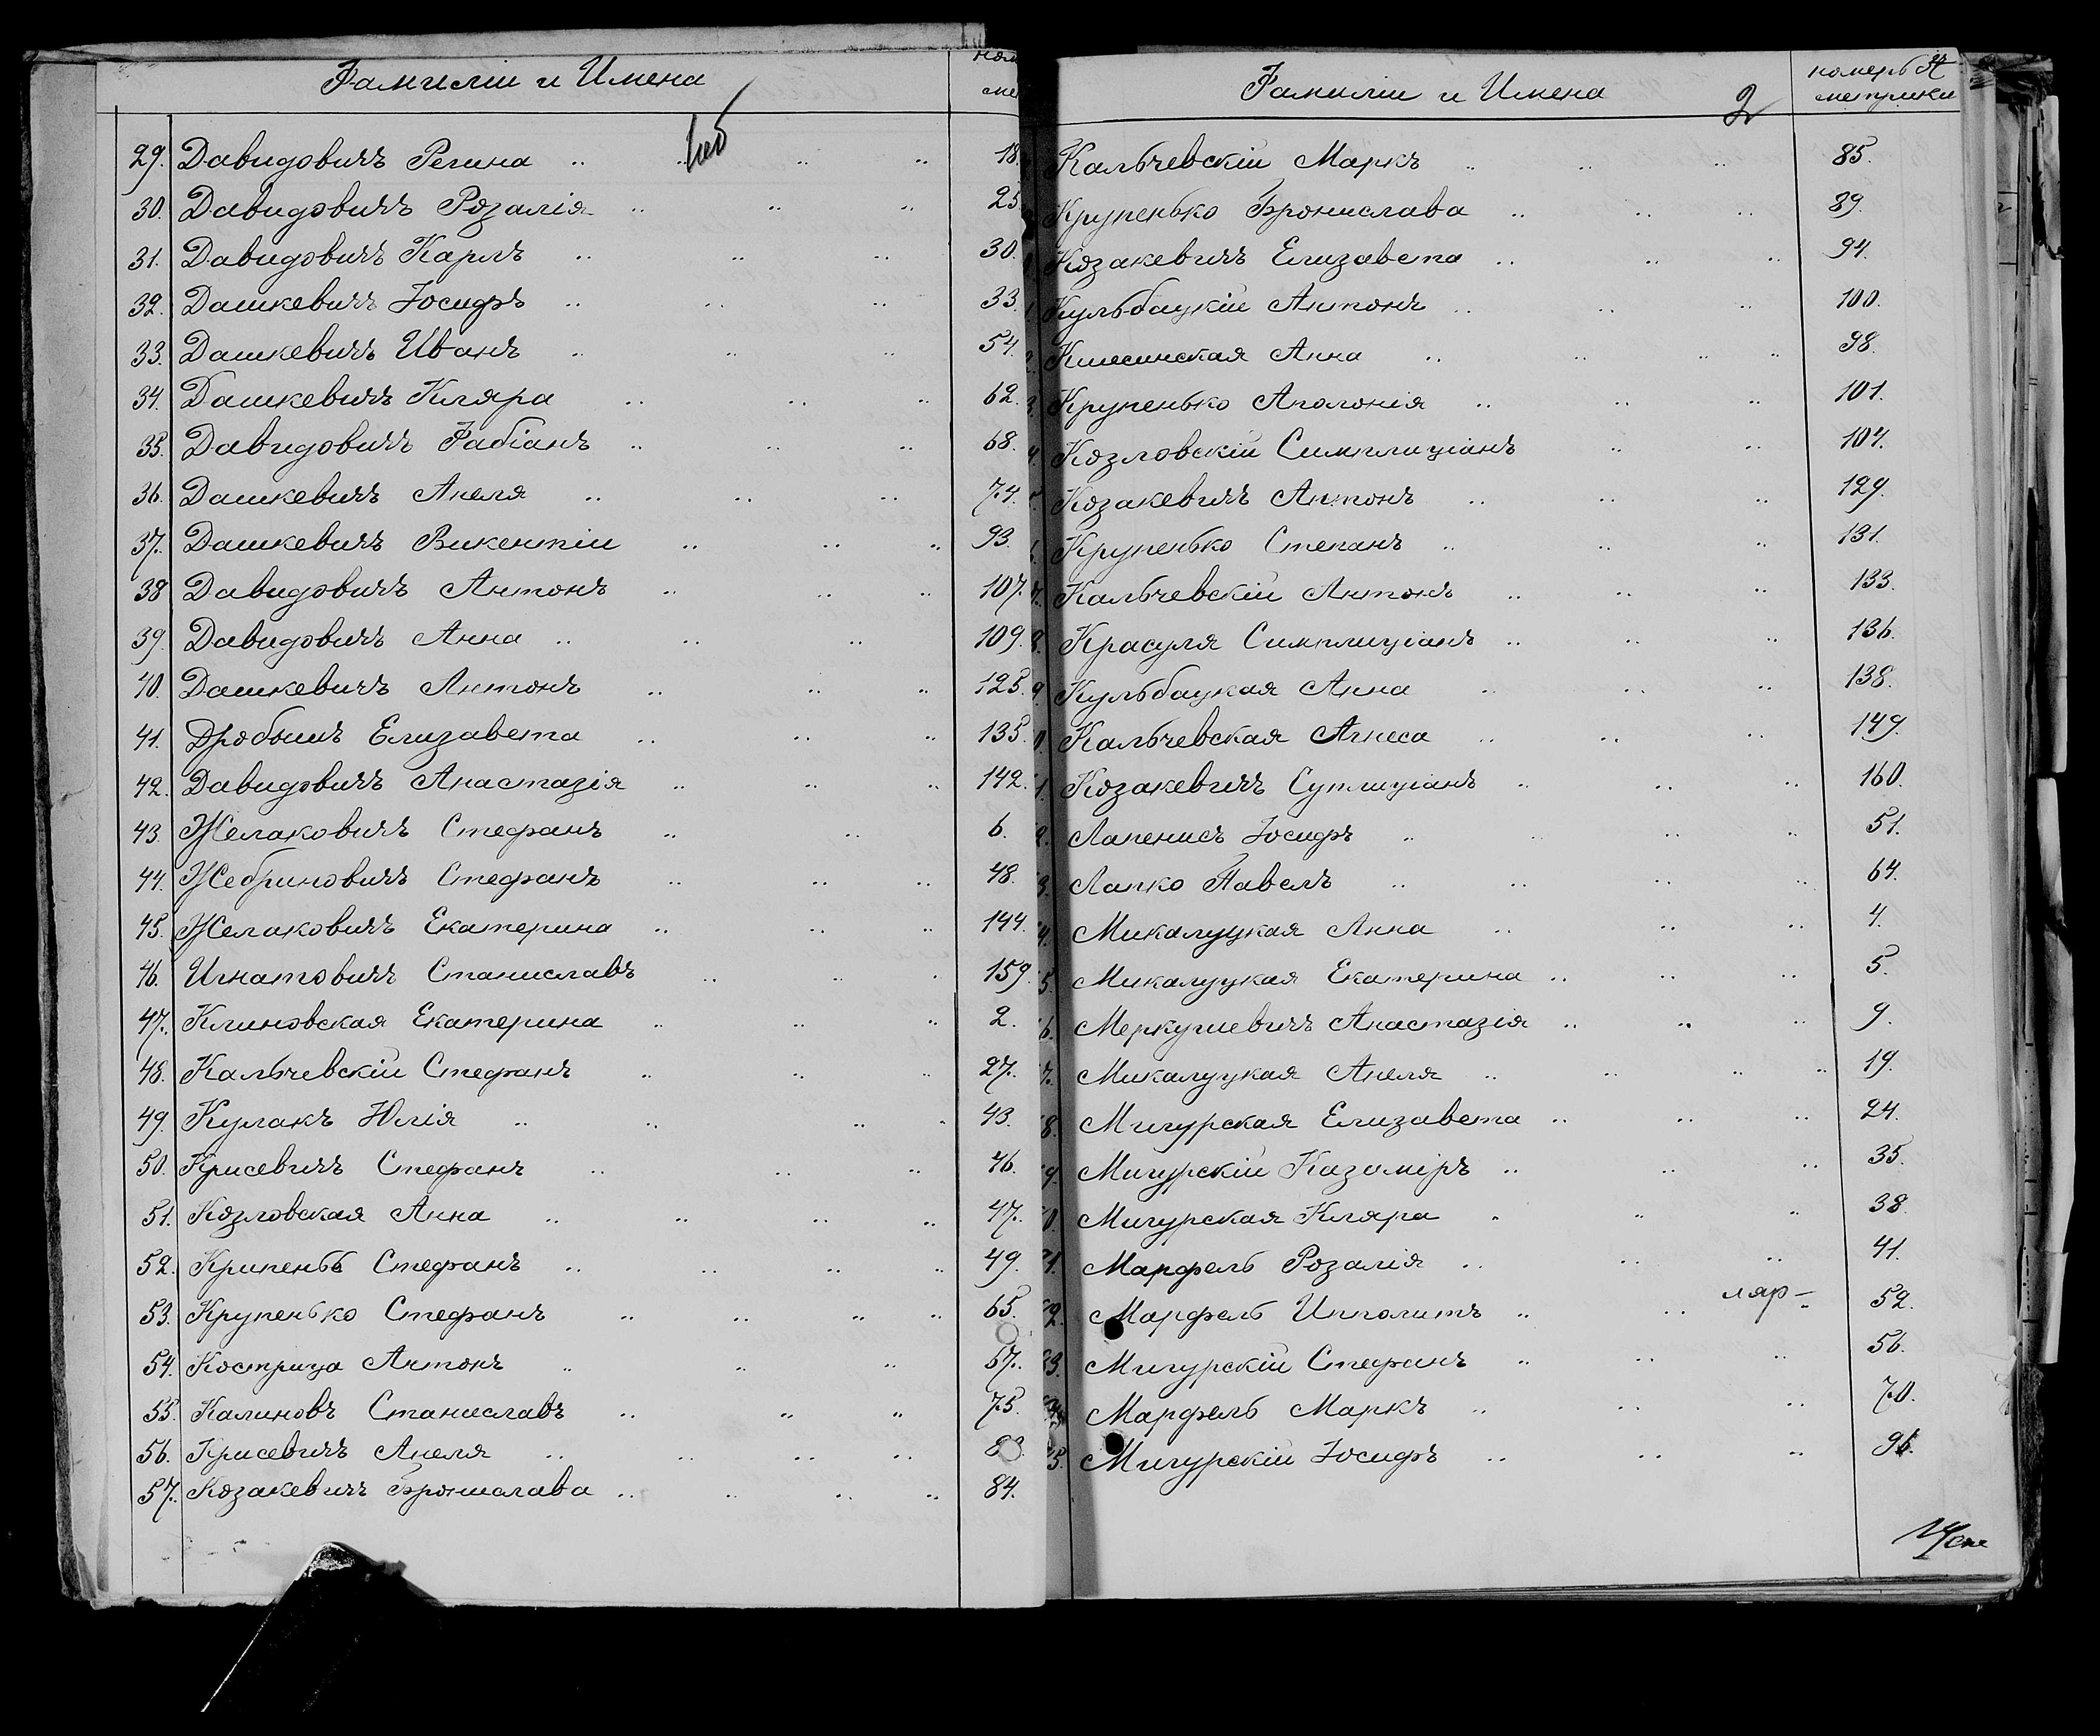 Фамиліи и Имена
29. Давидовичъ Регина 18.
30. Давидовичъ Розалія 25.
31. Давидовичъ Карлъ 30.
32. Дашкевичъ Іосифъ 33.
33. Дашкевичъ Иванъ 54.
34. Дашкевичъ Кляра 62.
35. Давидовичъ Фабіанъ 68.
36. Дашкевичъ Анеля 74.
37. Дашкевичъ Викентій 93.
38 Давидовичъ Антонъ 107.
39. Давидовичъ Анна 109.
40. Дашкевичъ Антонъ 125.
41. Дробышъ Елизавета 135.
42. Давидовичъ Анастазія 142.
43. Желаковичъ Стефанъ 6.
44. Жебриновичъ Стефанъ 48.
45. Желаковичъ Екатерина 144.
46. Игнатовичъ Станиславъ 159.
47. Климовская Екатерина 2.
48. Кальчевскій Стефанъ 27.
49. Кулакъ Юлія 43.
50. Крисевичъ Стефанъ 46.
51. Козловская Анна 47.
52. Стефанъ 49.
53. Крупенько Стефанъ 65.
54. Кострица Антонъ 67.
55. Калиновъ Станиславъ 75.
56. Крисевичъ Анеля
57. Козакевичъ Брониславa 84.
Фамиліи и Имена
2
номеръ
метрики
Кальчевскій Маркъ 85.
Крупенько Бронислава 89.
Козакевичъ Елизавета 94.
Кульбацкій Антонъ 100.
Анна 98.
Крупенько Аполонія 101.
Козловскій Симплиціанъ 104.
Козакевичъ Антонъ 129.
Крупенько Степанъ 131.
7. Кальчевскій Антонъ 133.
8. Красуля Симплиціанъ 136.
9. Кульбацкая Анна 138.
Кальчевская Агнеса 149.
1. Козакевичъ Суплиціанъ 160.
2. Лапенисъ Іосифъ 51.
3. Лапко Павелъ 64.
4. Микалуцкая Анна 4.
5. Микалуцкая Екатерина 5.
6. Меркушевичъ Анастазія 9.
7. Микалуцкая Анеля 19.
8. Мигурская Елизавета 24.
9. Мигурскій Казиміръ 35.
0. Мигурская Кляра 38.
1. Марфель Розалія 41.
2. Марфель Ипполитъ ляр- 52.
3. Мигурскій Стефанъ 56.
Марфель Маркъ 70.
5. Мигурскій Іосифъ 96.